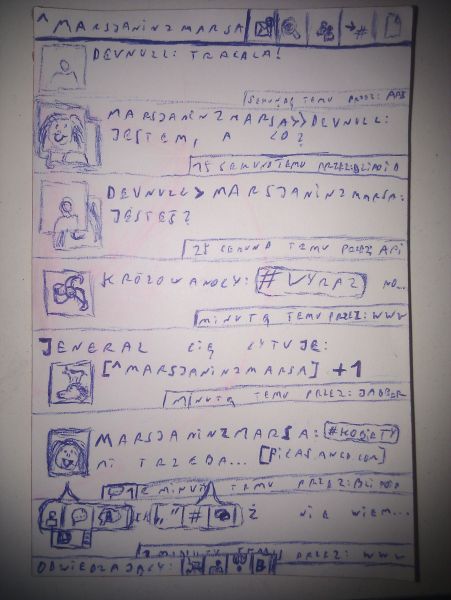 ^MARSJANINZMARSA →#
DEVNULL: TRALALA!
SEKUNDĘ TEMU PRZEZ: API
MARSJANINZMARSA>>DEVNULL:
JESTEM, A CO?
15 SEKUND TEMU PRZEZ: BLIPOID
DEVNULL>MARSJANINZMARSA:
JESTEŚ?
25 SEKUND TEMU PRZEZ API
#WYRAZ NO...
MINUTĘ TEMU PRZEZ: WWW
JENERAL CIĘ CYTUJE:
[^MARSJANINZMARSA] +1
MINUTĘ TEMU PRZEZ: JABBER
MARSJANINZMARSA: #KOBIETY
MI TRZEBA...
MINUTY TEMU PRZEZ: BLIPOID
„" # Ż NIE WIEM...
PRZEZ: WWW
ODWIEDZAJĄCY: